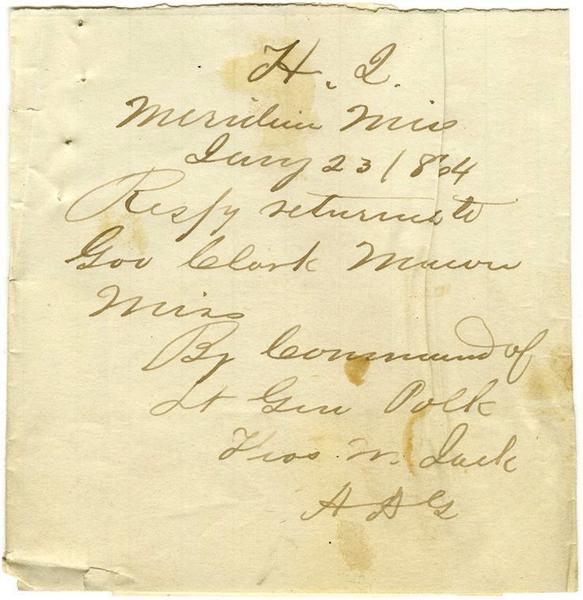 H. Q.
Meridian Miss
Jany 23/864
Respy returned to
Gov Clark Macon
Miss
By Command of
Lt Gen Polk
Thos. M. Jack
A A G